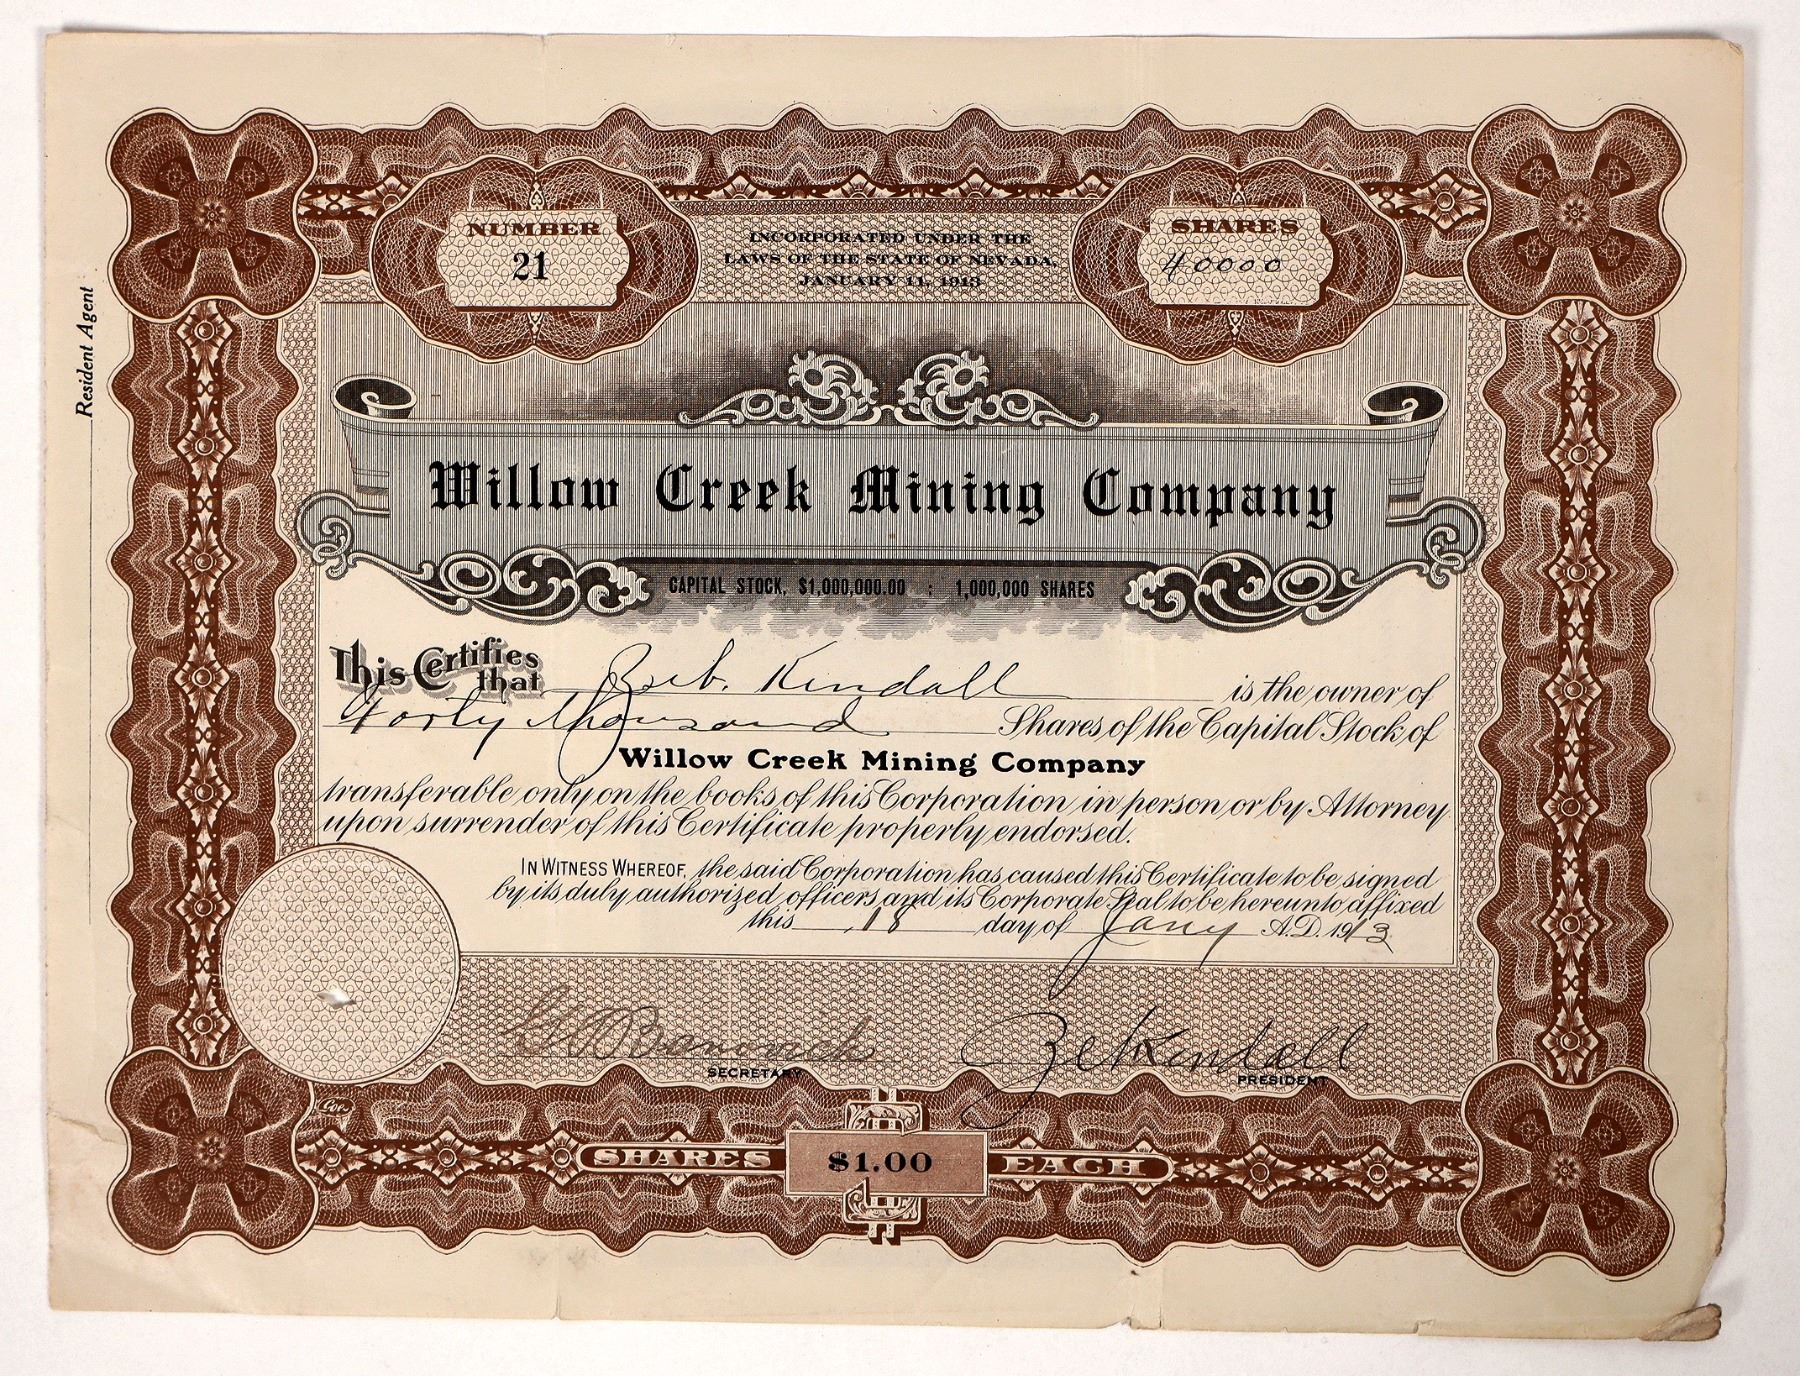 NUMBER
21
INCORPORATED UNDER THE
LAWS OF THE STATE OF NEVADA,
JANUARY 11, 1913
SHARES
40000
Resident Agent
Willow Creek Mining Company
CAPITAL STOCK, $1,000,000.00 : 1,000,000 SHARES
This Certifies that Zeb. Kendall is the owner of
Forty thousand Shares of the Capital Stock of
Willow Creek Mining Company
transferable only on the books of this Corporation in person or by Attorney
upon surrender of this Certificate properly endorsed.
IN WITNESS WHEREOF, the said Corporation has caused this Certificate to be signed
by its duly authorized officers and its Corporate Seal to be hereunto affixed
this 18 day of Jany A.D. 1913
Zeb Kendall
SECRETARY
PRESIDENT
Goes
SHARES $1.00 EACH